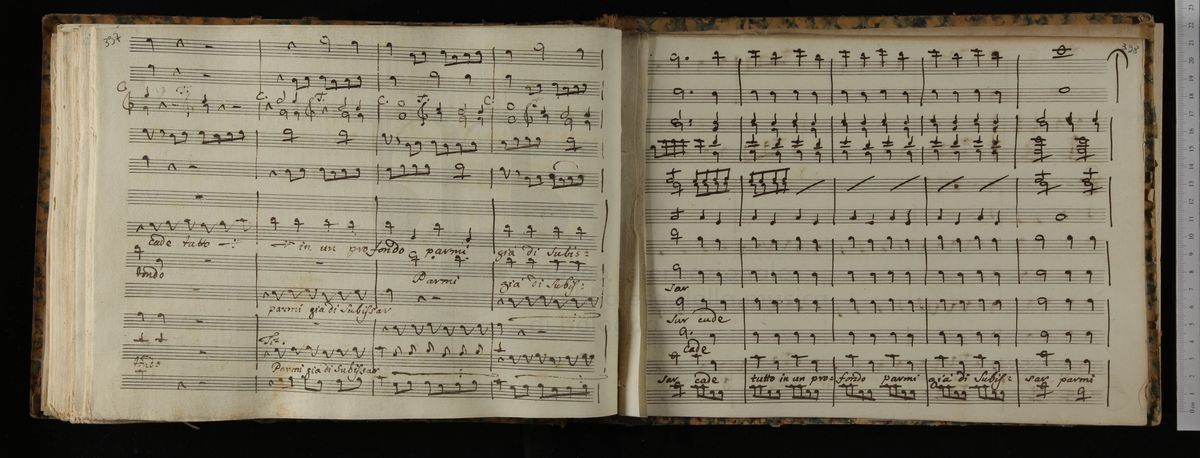 337
cade tutto in un profondo parmi già di Subis=
fondo Parmi già di Subiss:
parmi già di Subissar
Parmi già di Subissar
338
sar
sar cade
cade
sar cade tutto in un pro= fondo parmi già di Subiss: sar parmi